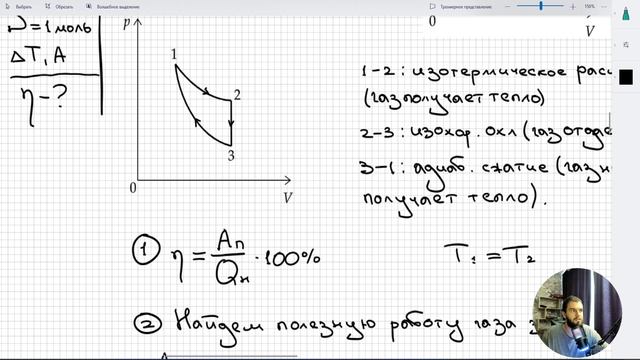 Выбрать
Обрезать
Волшебное выделение
Трехмерное представление
150%
ν = 1 моль
ΔT, A
η - ?
p
1
2
3
0
V
0
V
1-2: изотермическое
(газ получает тепло)
2-3: изохор. охл
3-1: адиаб. сжатие (газ
получает тепло).
① η = Aп / Qн · 100%
T₁ = T₂
② Найдем полезную работу газа